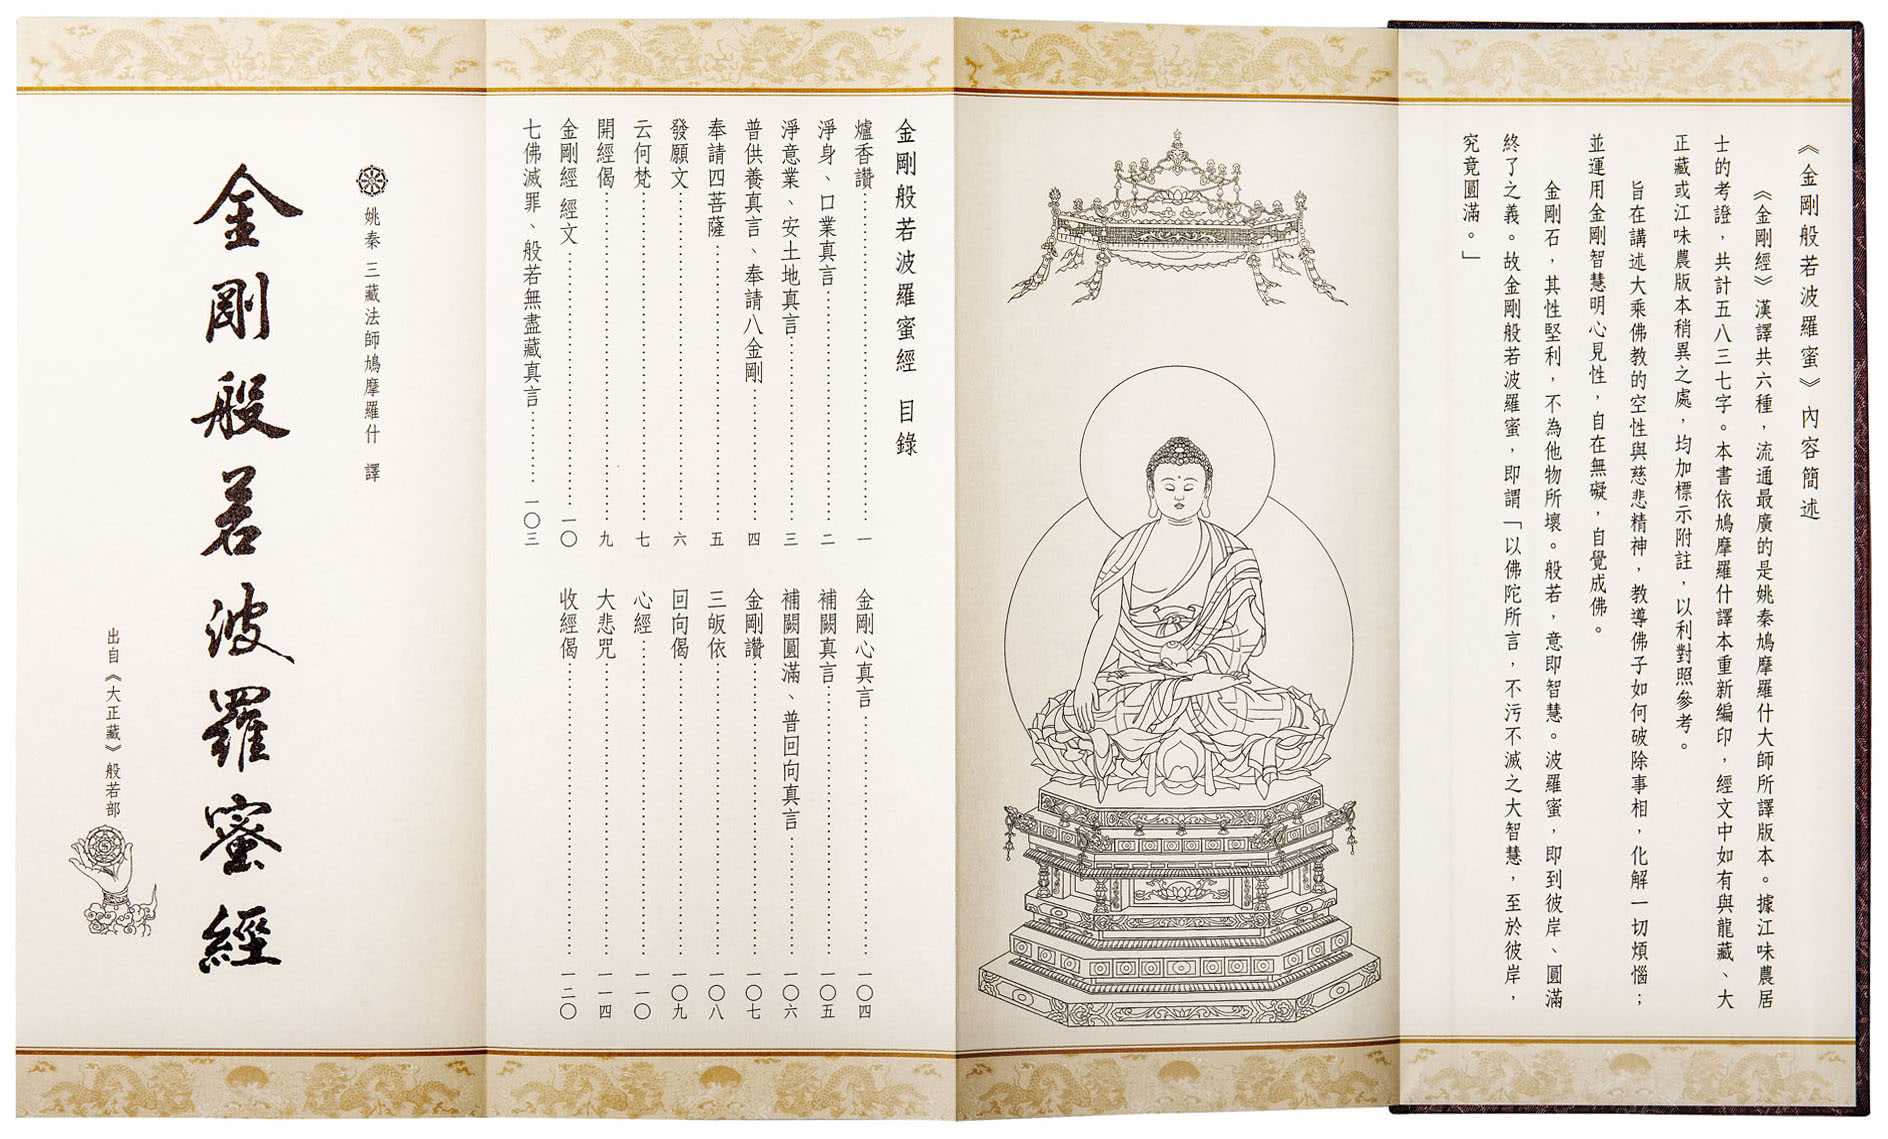 《金剛般若波羅蜜》內容簡述
《金剛經》漢譯共六種，流通最廣的是姚秦鳩摩羅什大師所譯版本。據江味農居
士的考證，共計五八三七字。本書依鳩摩羅什譯本重新編印，經文中如有與龍藏、大
正藏或江味農版本稍異之處，均加標示附註，以利對照參考。
旨在講述大乘佛教的空性與慈悲精神，教導佛子如何破除事相，化解一切煩惱；
並運用金剛智慧明心見性，自在無礙，自覺成佛。
金剛石，其性堅利，不為他物所壞。般若，意即智慧。波羅蜜，即到彼岸、圓滿
終了之義。故金剛般若波羅蜜，即謂「以佛陀所言，不污不滅之大智慧，至於彼岸，
究竟圓滿。」
金剛般若波羅蜜經 目錄
爐香讚 一
淨身、口業真言 二
淨意業、安土地真言 三
普供養真言、奉請八金剛 四
奉請四菩薩 五
發願文 六
云何梵 七
開經偈 九
金剛經 經文 一〇
七佛滅罪、般若無盡藏真言 一〇三
金剛心真言 一〇四
補闕真言 一〇五
補闕圓滿、普回向真言 一〇六
金剛讚 一〇七
三皈依 一〇八
回向偈 一〇九
心經 一一〇
大悲咒 一一四
收經偈 一二〇
姚秦 三藏法師鳩摩羅什 譯
金剛般若波羅蜜經
出自《大正藏》般若部